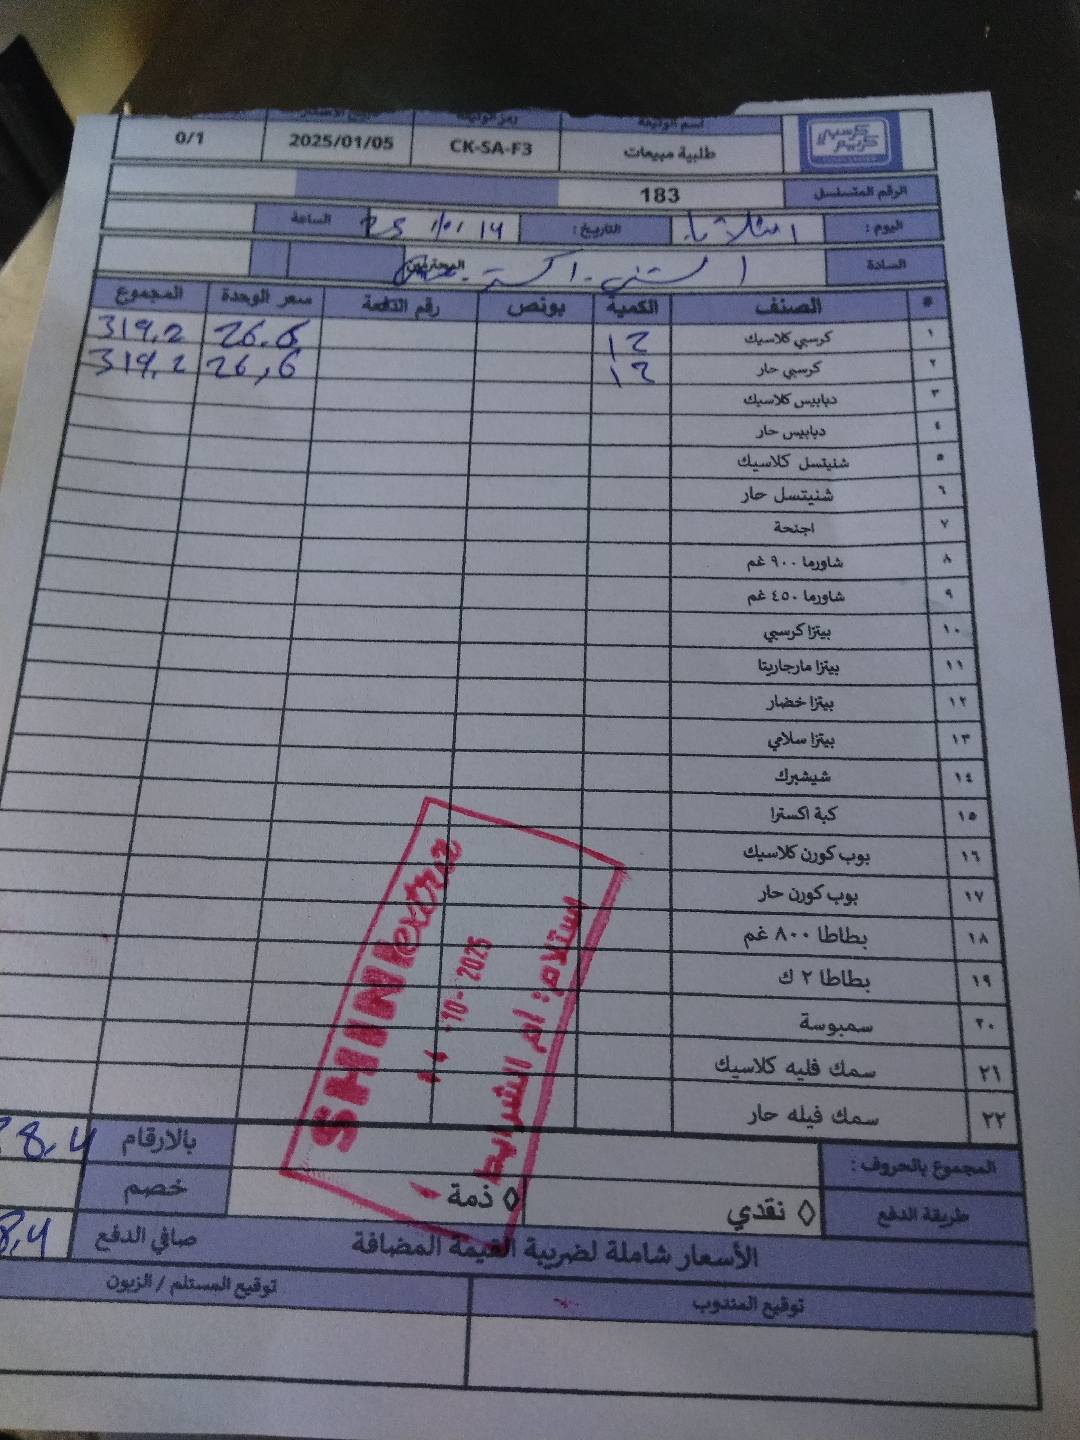 كرسبي كريم
اسم الوثيقة رمز الوثيقة
طلبية مبيعات CK-SA-F3 2025/01/05 0/1
الرقم المتسلسل 183
اليوم : الثلاثاء التاريخ : 14 /10/ 25 الساعة :
السادة المحترمين
# الصنف الكمية بونص رقم الدفعة سعر الوحدة المجموع
١ كرسبي كلاسيك 12 26.6 319.2
٢ كرسبي حار 12 26,6 319.2
٣ دبابيس كلاسيك
٤ دبابيس حار
٥ شنيتسل كلاسيك
٦ شنيتسل حار
٧ اجنحة
٨ شاورما ٩٠٠ غم
٩ شاورما ٤٥٠ غم
١٠ بيتزا كرسبي
١١ بيتزا مارجاريتا
١٢ بيتزا خضار
١٣ بيتزا سلامي
١٤ شيشبرك
١٥ كبة اكسترا
١٦ بوب كورن كلاسيك
١٧ بوب كورن حار
١٨ بطاطا ٨٠٠ غم
١٩ بطاطا ٢ ك
٢٠ سمبوسة
٢١ سمك فليه كلاسيك
٢٢ سمك فيله حار
SHINI extra
14 -10- 2025
استلام: ام الشرايط
المجموع بالحروف : بالارقام 8,4
طريقة الدفع ◊ نقدي ◊ ذمة خصم
الأسعار شاملة لضريبة القيمة المضافة صافي الدفع 8,4
توقيع المندوب توقيع المستلم / الزبون